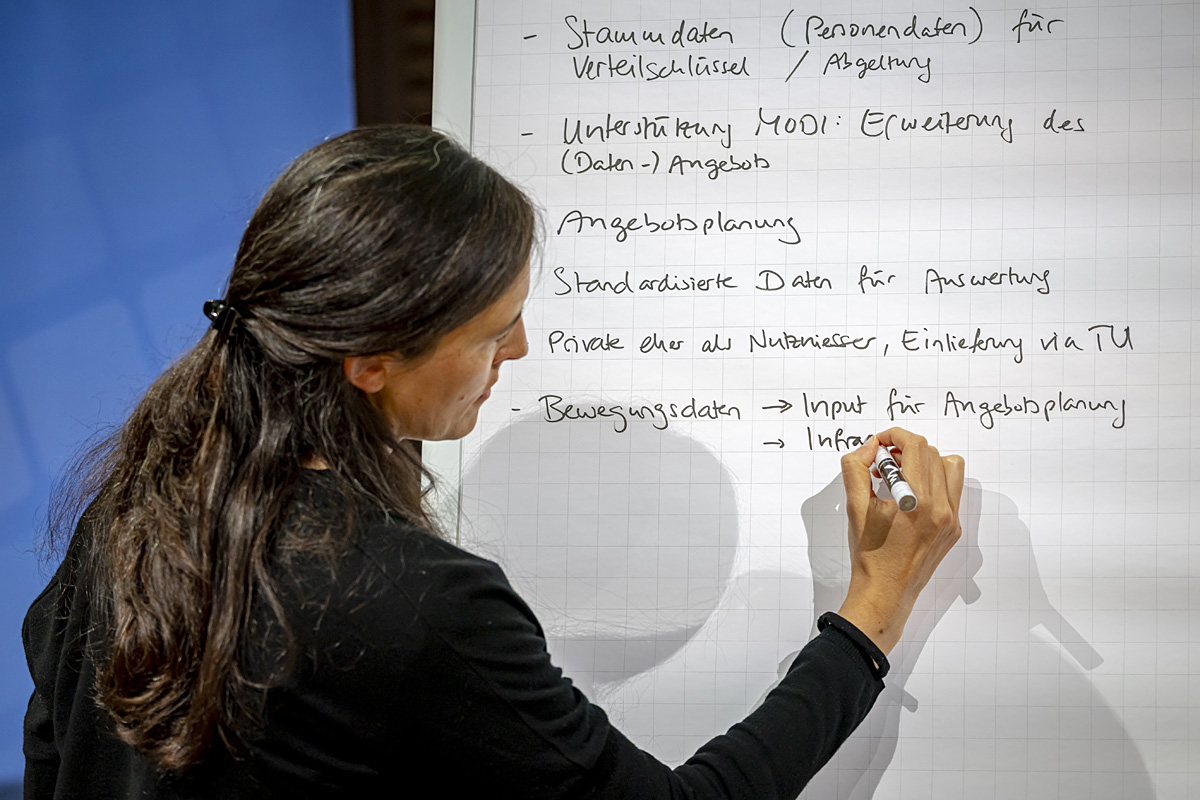 - Stammdaten (Personendaten) für
Verteilschlüssel / Abgeltung
- Unterstützung MODI: Erweiterung des
(Daten-) Angebots
Angebotsplanung
Standardisierte Daten für Auswertung
Private eher als Nutzniesser, Einlieferung via TU
- Bewegungsdaten → Input für Angebotsplanung
→ Infra